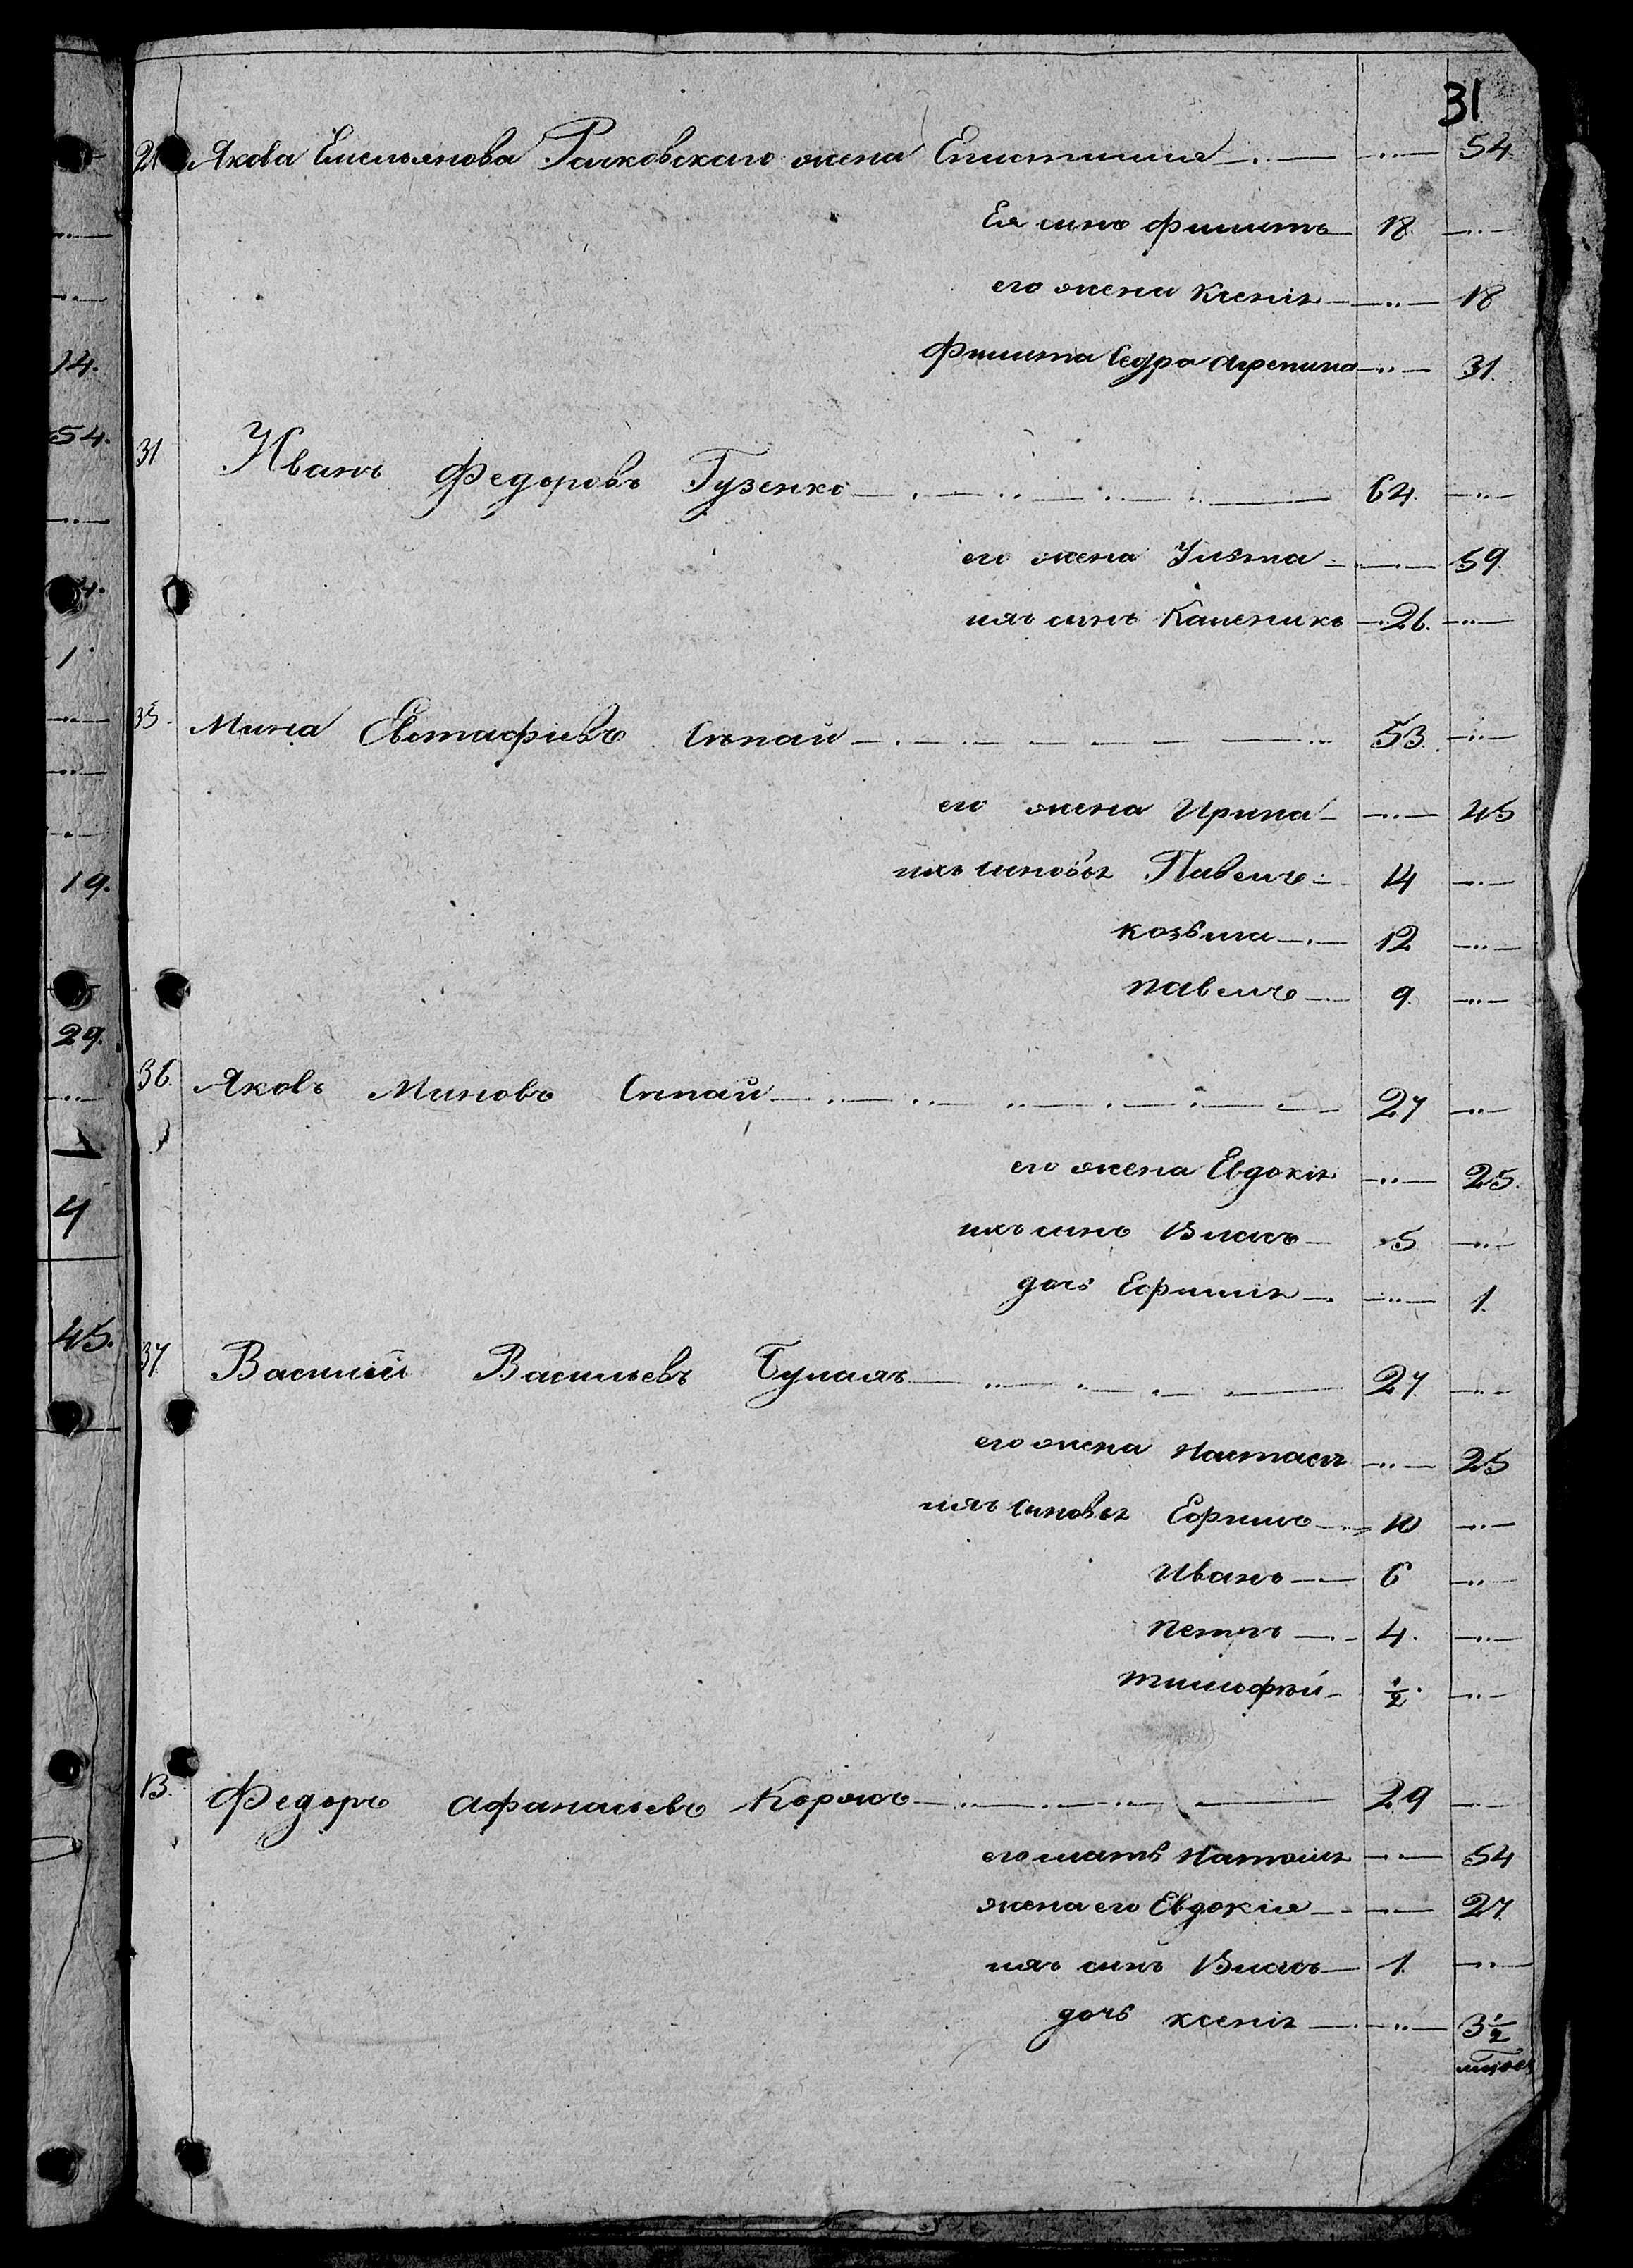 31
21 Якова Емельянова Рачковскаго жена Епистимия 54
Ея синъ Филипъ 18
его жена Ксенія 18
Филипа Седра Агрепина 31
31 Иванъ Федоровъ Гузенко 64
его жена Уляна 59
ихъ синъ Каленикъ 26
35 Мина Евстафиевъ Сѣпай 53
его жена Ирина 45
ихъ синовья Павелъ 14
козьма 12
павелъ 9
36 Яковъ Миновъ Сѣпай 27
его жена Евдокія 25
ихъ синъ Власъ 5
дочь Ефимія 1
37 Василий Васильевъ Булахъ 27
его жена Настася 25
ихъ синовья Ефимъ 10
Иванъ 6
петръ 4
тимофѣй ½
13 Федоръ Афанасьевъ Коржъ 29
его мать Наталия 54
жена его Евдокія 27
ихъ синъ Власъ 1
дочь ксенія 3½
14
54
1
19
29
4
45